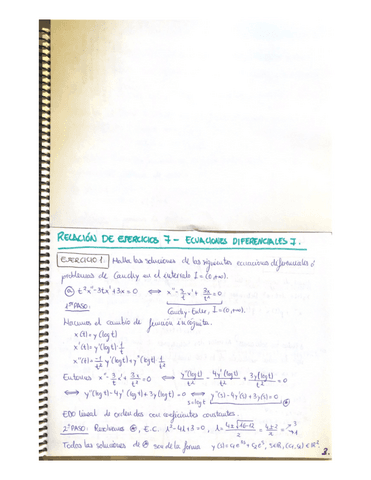 RELACIÓN DE EJERCICIOS 7 - ECUACIONES DIFERENCIALES I.
EJERCICIO 1. Halla las soluciones de las siguientes ecuaciones diferenciales o
problemas de Cauchy en el intervalo I=(0,+∞).
ⓐ t²x''-3tx'+3x=0 ⟺ x''-3/t x'+3x/t²=0
1er PASO. Cauchy-Euler, I=(0,+∞).
Hacemos el cambio de función incógnita.
x(t)=y(log t)
x'(t)=y'(log t)·1/t
x''(t)=-1/t² y'(log t)+y''(log t)·1/t²
Entonces x''-3/t x'+3x/t²=0 ⟺ y''(log t)/t² - 4y'(log t)/t² + 3y(log t)/t² = 0
⟺ y''(log t)-4y'(log t)+3y(log t)=0 ⟺ s=log t y''(s)-4y'(s)+3y(s)=0
EDO lineal de orden dos con coeficientes constantes.
2º PASO. Resolvemos ⊛, E.C. λ²-4λ+3=0, λ=4±√16-12/2=4±2/2= 3 1
Todas las soluciones de ⊛ son de la forma y(s)=c₁e³ˢ+c₂eˢ, s∈ℝ, (c₁,c₂)∈ℝ².
3.